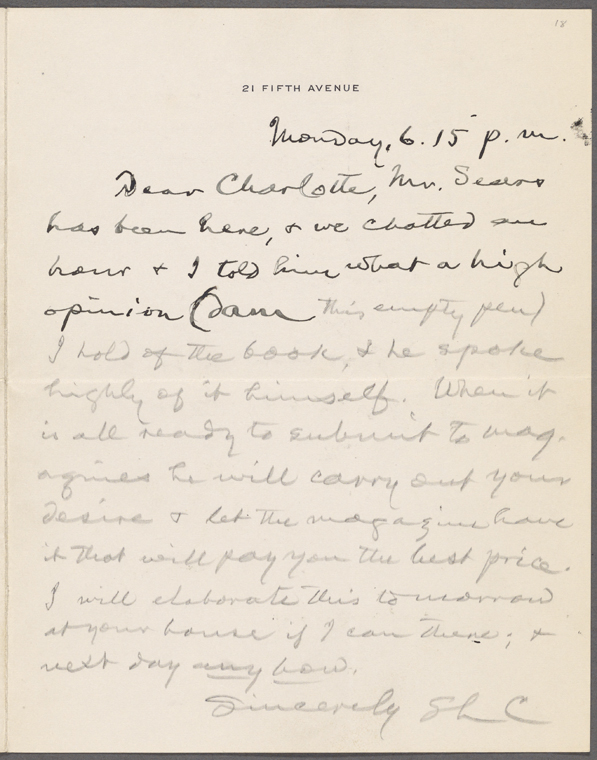 18
21 FIFTH AVENUE
Monday, 6.15 p. m.
Dear Charlotte, Mr. Sears
has been here, & we chatted an
hour & I told him what a high
opinion (dam this empty pen)
I hold of the book, & he spoke
highly of it himself. When it
is all ready to submit to mag-
azines he will carry out your
desire & let the magazine have
it that will pay you the best price.
I will elaborate this to-morrow
at your house if I can there; &
next day any how.
Sincerely SLC